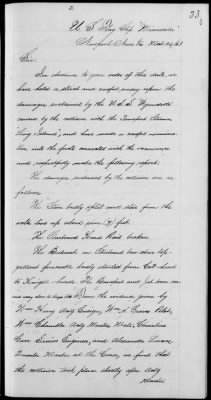 33
U. S. Flag Ship "Minnesota"
Newport News Va
Sir
In obedience to your order of this date, we
have held a strict and careful survey upon the
damages sustained by the U. S. S. Wyandotte
caused by the collision with the Transport Steamer
Long Island, and have made a careful examination
into the facts connected with the occurrence
and respectfully make the following report.
The damages sustained by the collision are as
follows.
The Stem badly split and stove from the
water line up about seven (7) feet.
The Starboard Head Rail broken.
The Bulwark on Starboard bow down top-
gallant forecastle badly started from Cat-head
to Knight-heads. The Bowsprit and jib boom can
From the evidence given by
Wm Henry Acting Ensign, Wm H. Pilot,
Wm Chandler Acting Master Mate, Cornelius
Carr Senior Engineer, and Alexander
Quarter Master at the Conn, we find that
the collision took place shortly after